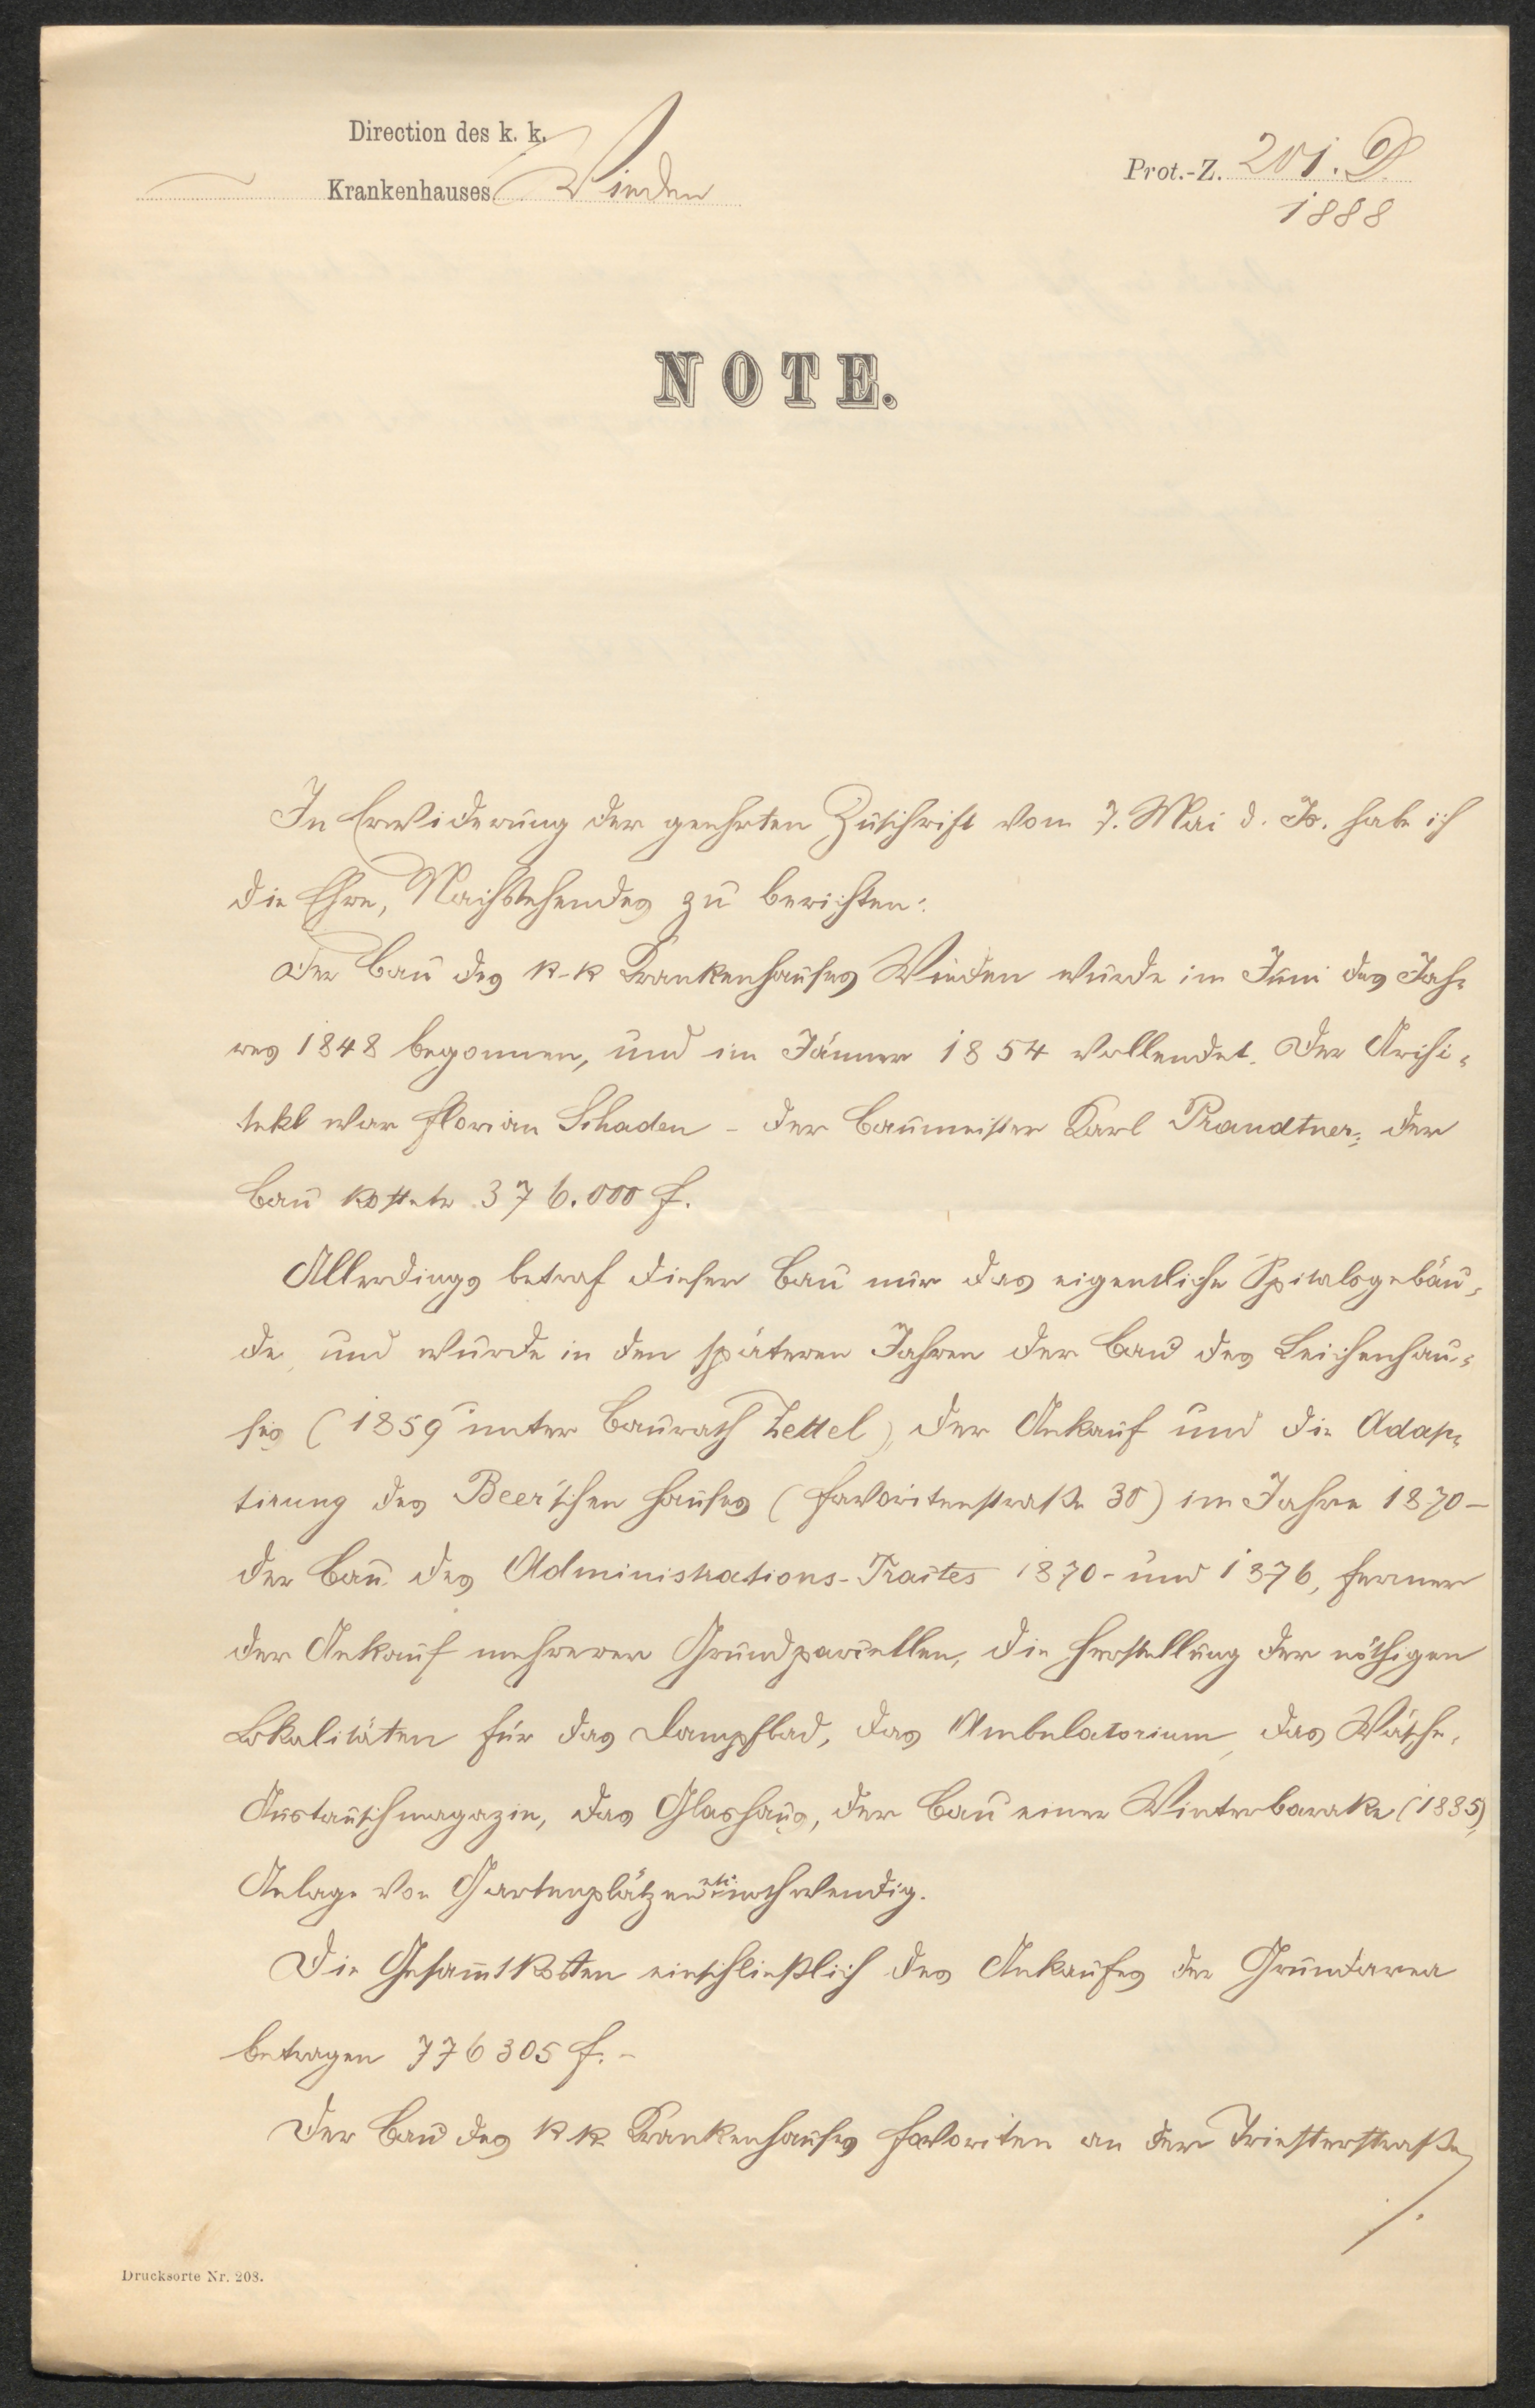 Direction des k. k.
Krankenhauses Wieden
Prot.-Z. 201. D.
1888
NOTE.
In Erwiderung der geehrten Zuschrift vom 7. Mai d. Js. habe ich
die Ehre, Nachstehendes zu berichten:
Der Bau des k-k Krankenhauses Wieden wurde im Juni des Jah-
res 1848 begonnen, und im Jänner 1854 vollendet. Der Archi-
tekt war Florian Schaden - der Baumeister Karl Prandtner; der
Bau kostete 376.000 f.
Allerdings betraf dieser Bau nur das eigentliche Spitalsgebäu-
de, und wurde in den späteren Jahren der Bau des Leichenhau-
ses (1859 unter Baurath Zettel), der Ankauf und die Adap-
tirung des Beer'schen Hauses (Favoritenstraße 30) im Jahre 1870 -
der Bau des Administrations-Traktes 1870 - und 1876, ferner
der Ankauf mehrerer Grundparcellen, die Herstellung der nöthigen
Lokalitäten für das Dampfbad, das Ambulatorium, das Wäsche-
Austauschmagazin, das Glashaus, der Bau einer Winterbarake (1885),
Anlage von Gartenplätzen etc. nothwendig.
Die Gesammtkosten einschließlich des Ankaufes der Grundarea
betragen 776305 f. -
Der Bau des k k Krankenhauses Favoriten an der Triesterstraße
./.
Drucksorte Nr. 208.